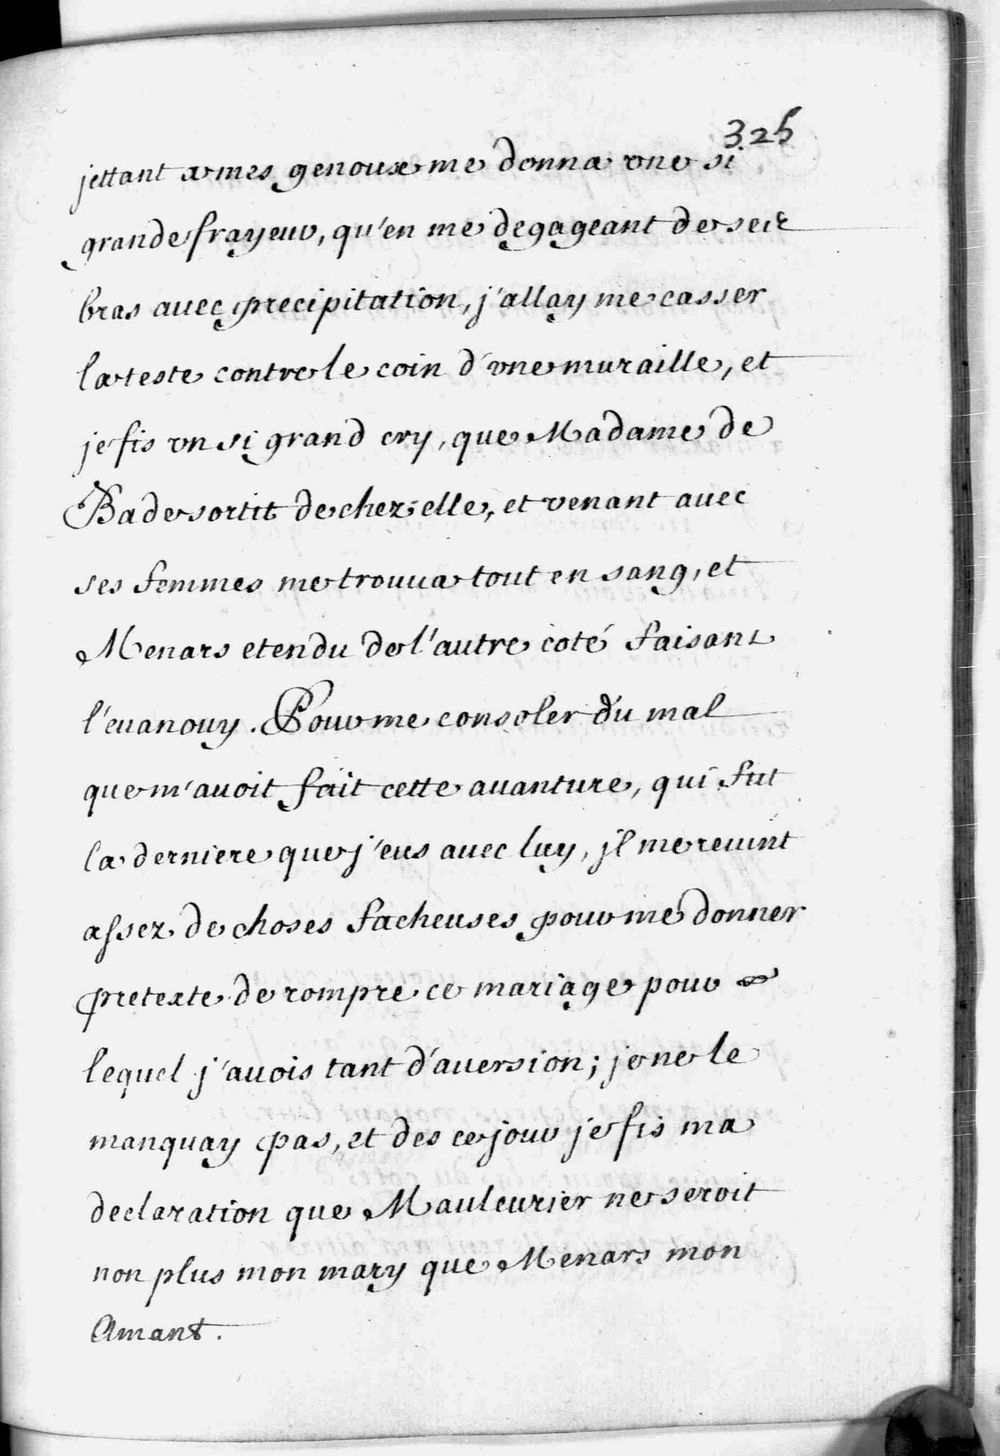 325
jettant a mes genoux me donna vne si
grande frayeur, qu'en me degageant de ses
bras avec precipitation, j'allay me casser
la teste contre le coin d'vne muraille, et
je fis vn si grand cry, que Madame de
Bade sortit de chez elle, et venant avec
ses femmes me trouua tout en sang, et
Menars etendu de l'autre coté faisant
l'euanouy. Pour me consoler du mal
que m'auoit fait cette auanture, qui fut
la derniere que j'eus avec luy, jl me reuint
assez de choses facheuses pour me donner
pretexte de rompre ce mariage pour
lequel j'auois tant d'auersion; je ne le
manquay pas, et des ce jour je fis ma
declaration que Mauleurier ne seroit
non plus mon mary que Menars mon
Amant.